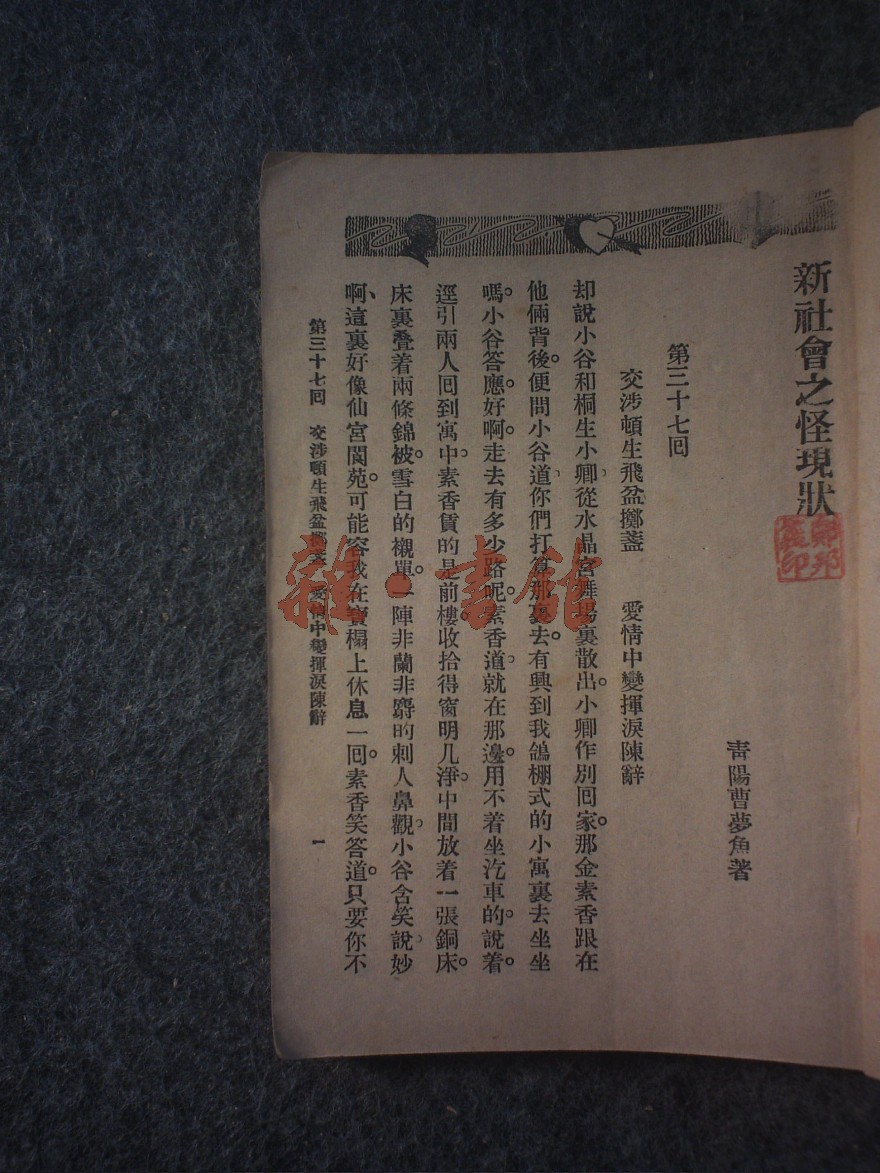 新社會之怪現狀
青陽曹夢魚著
第三十七回
交涉頓生飛盆擲盞　愛情中變揮淚陳辭
却說小谷和桐生小卿、從水晶宮舞場裏散出。小卿作別回家。那金素香跟在
他倆背後。便問小谷道、你們打算那裏去。有興到我鴿棚式的小寓裏去坐坐
嗎。小谷答應。好啊。走去有多少路呢。素香道、就在那邊。用不着坐汽車的。說着。
逕引兩人回到寓中。素香賃的是前樓。收拾得窗明几淨。中間放着一張銅床。
床裏疊着兩條錦被。雪白的襯單。一陣非蘭非麝的刺人鼻觀、小谷含笑說、妙
啊、這裏好像仙宮閬苑。可能容我在寶榻上休息一回。素香笑答道。只要你不
第三十七回　交涉頓生飛盆擲盞　愛情中變揮淚陳辭
一
雜·書館